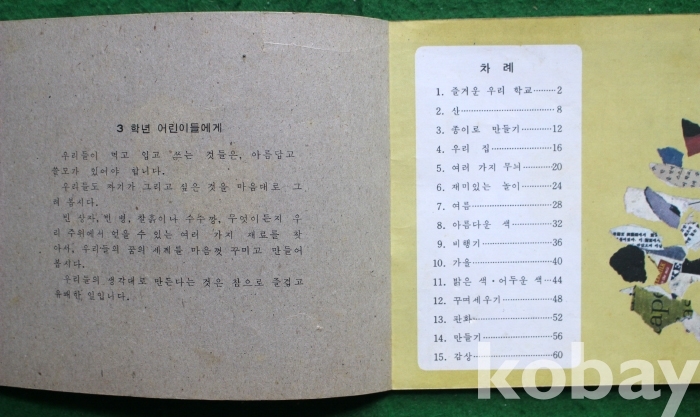 3 학년 어린이들에게
우리들이 먹고 입고 쓰는 것들은, 아름답고
쓸모가 있어야 합니다.
우리들도 자기가 그리고 싶은 것을 마음대로 그
려 봅시다.
빈 상자, 빈 병, 찰흙이나 수수깡, 무엇이든지 우
리 주위에서 얻을 수 있는 여러 가지 재료를 찾
아서, 우리들의 꿈의 세계를 마음껏 꾸미고 만들어
봅시다.
우리들의 생각대로 만든다는 것은 참으로 즐겁고
유쾌한 일입니다.
차 례
1. 즐거운 우리 학교·········2
2. 산·········8
3. 종이로 만들기·········12
4. 우리 집·········16
5. 여러 가지 무늬·········20
6. 재미있는 놀이·········24
7. 여름·········28
8. 아름다운 색·········32
9. 비행기·········36
10. 가을·········40
11. 밝은 색·어두운 색·········44
12. 꾸며세우기·········48
13. 판화·········52
14. 만들기·········56
15. 감상·········60
KE
ape
kobay